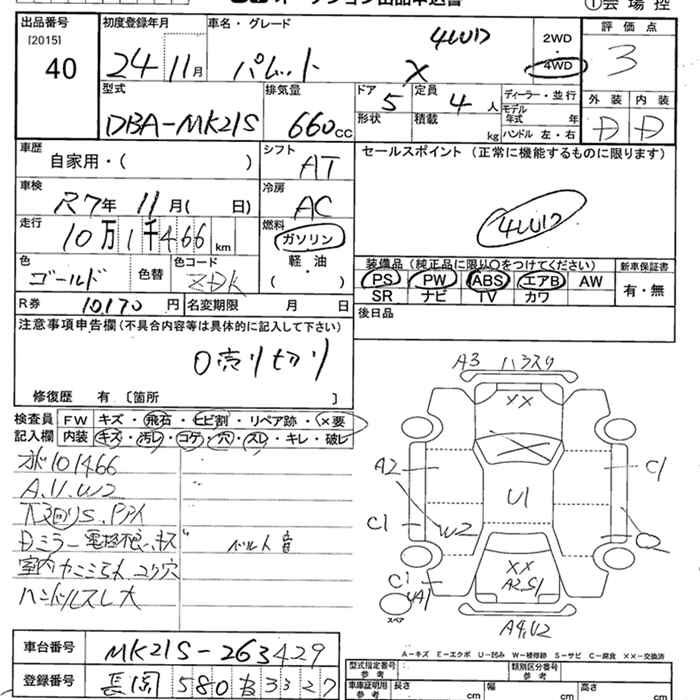 オークション出品申込書
①会場控
出品番号 初度登録年月 車名・グレード 4WD 2WD 評価点
[2015] 24年 11月 パレット X 4WD 3
40
型式 排気量 ドア 定員 ディーラー・並行 外装 内装
DBA-MK21S 660cc 5 4人 モデル年式 年 D D
形状 積載 kg ハンドル 左・右
車歴 シフト セールスポイント (正常に機能するものに限ります)
自家用・( ) AT
車検 冷房
R7年 11月( 日) AC 4WD
走行 燃料
10万1千466km ガソリン
色 色コード 軽・油 装備品(純正品に限り○をつけてください) 新車保証書
ゴールド 色替 ZDK ( ) PS PW ABS エアB AW 有・無
SR ナビ TV カワ
R券 10170円 名変期限 月 日 後日品
注意事項申告欄(不具合内容等は具体的に記入して下さい)
0売り切り
修復歴 有 [箇所
検査員 FW キズ・飛石・ヒビ割・リペア跡・×要
記入欄 内装 キズ・汚レ・コゲ・穴・スレ・キレ・破レ
101466
A.U.W2
Dミラー電格不良.キズ ベルト音
ハンドルスレ大
A3 ハラスリ
XX
A2 C1
U1
C1 W2
XX
C1 A2.S1
UA1
スペア
A4.U2
A-キズ E-エクボ U-凹み W-補修跡 S-サビ C-腐食 XX-交換済
車台番号 MK21S-263429
型式指定番号 参考 類別区分番号 参考
登録番号 長岡 580 3327
車庫証明用 参考 長さ cm 幅 cm 高さ cm